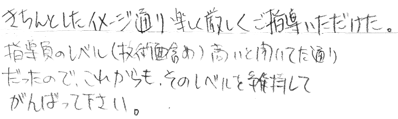 きちんとしたイメージ通り楽しく厳しくご指導いただけた。
指導員のレベル(技術面含め)高いと聞いてた通り
だったので、これからも、そのレベルを維持して
がんばって下さい。